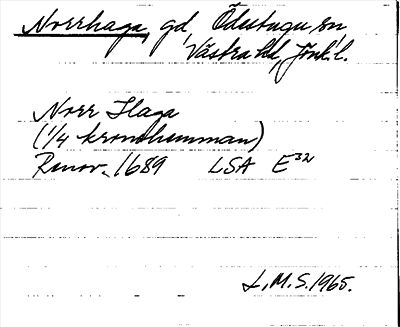 Norrhaga, gd, Ödestugu sn,
Västra hd, Jönk. l.
Norr Haga
(1/4 kronohemman)
Renov. 1689 LSA E³²
L.M.S. 1965.